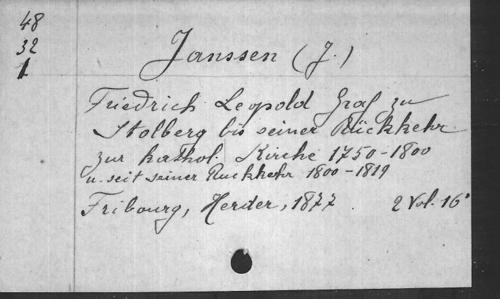 48
32
1
Janssen (J.)
Friedrich Leopold Graf zu
Stolberg bis seiner Rückkehr
zur kathol. Kirche 1750-1800
u. seit seiner Ruckkehr 1800-1819
Fribourg, Herder, 1877. 2 Vol. 16°